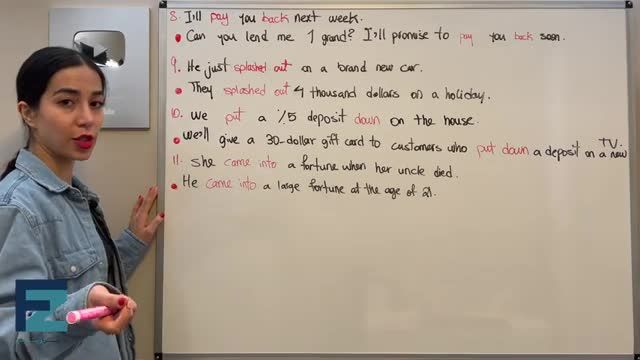 8. I'll pay you back next week.
• Can you lend me 1 grand? I'll promise to pay you back soon.
9. He just splashed out on a brand new car.
• They splashed out 4 thousand dollars on a holiday.
10. We put a %5 deposit down on the house.
• We'll give a 30-dollar gift card to customers who put down a deposit on a new TV.
11. She came into a fortune when her uncle died.
• He came into a large fortune at the age of 21.
FZ